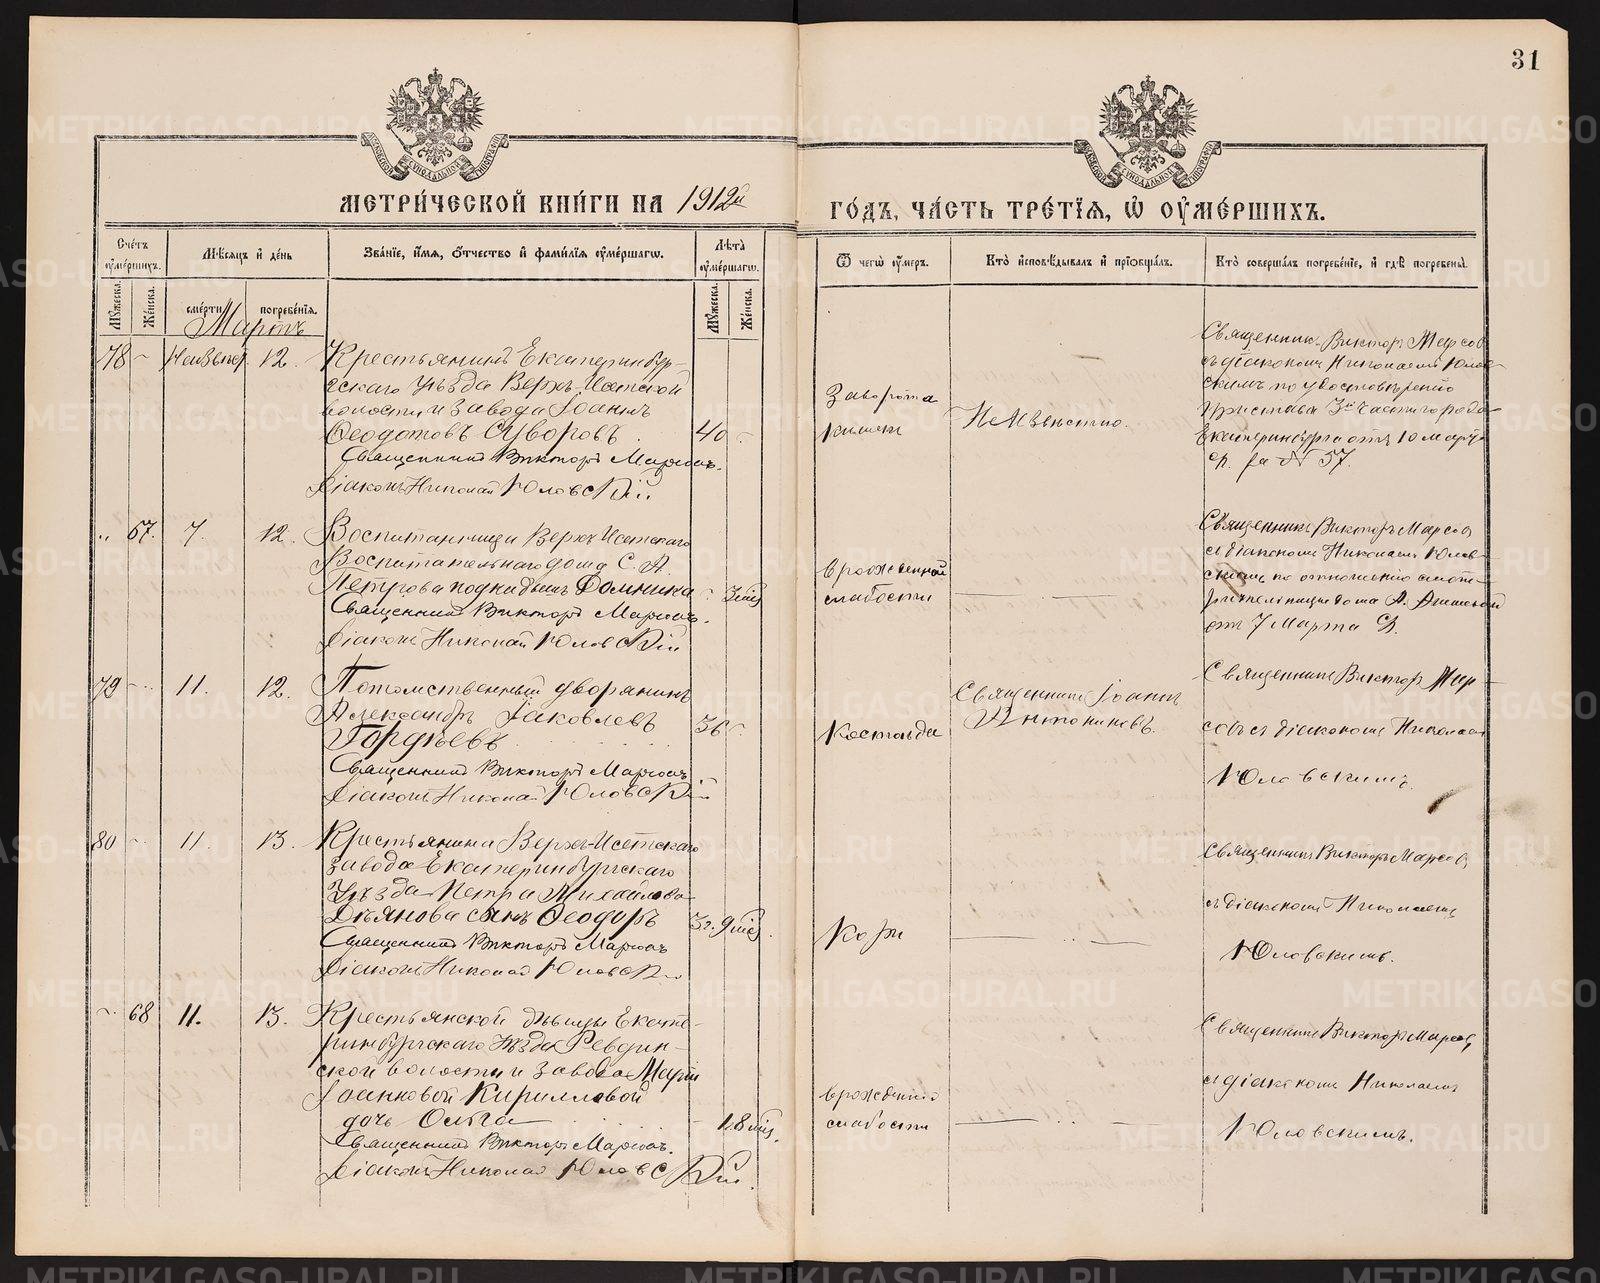 31
МЕТРИ́ЧЕСКОЙ КНИ́ГИ НА 1912й
ГО́ДЪ, ЧА́СТЬ ТРЕ́ТІЯ, Ѿ ОУМЕ́РШИХЪ.
Сче́тъ оумершихъ.
Мѣсяцъ и день
Званіе, имя, отчество и фамилія оумершагѡ.
Лѣта оумершагѡ.
Ѿ чегѡ оумеръ.
Кто исповѣдывалъ и пріобщалъ.
Кто совершалъ погребеніе, и гдѣ погребены.
Мужеска.
Женска.
смерти
погребенія.
Мужеска.
Женска.
Мартъ
78 Неизвѣст. 12.
Крестьянинъ Екатеринбур-
гскаго Уѣзда Верхъ-Исетской
волости и завода Іоаннъ
Ѳеодотовъ Суворовъ. 40
Священникъ Викторъ Марсовъ.
Діаконъ Николай Юловскій.
Заворота
кишекъ
Неизвѣстно.
Священникъ Викторъ Марсовъ
съ діакономъ Николаемъ Юлов-
скимъ по удостовѣренію
Пристава 3й части города
Екатеринбурга отъ 10 марта
с.г. за № 57.
67. 7. 12.
Воспитанница Верхъ-Исетскаго
Воспитательнаго дома С. А.
Петрова подкидышъ Домника 3 мѣс
Священникъ Викторъ Марсовъ.
Діаконъ Николай Юловскій
врожденной
слабости
Священникъ Викторъ Марсовъ
съ діакономъ Николаемъ Юлов-
скимъ по отношенію смотри-
тельницы дома А.
отъ 7 Марта с.г.
79 11. 12.
Потомственный дворянинъ
Александръ Іаковлевъ 36
Гордѣевъ
Священникъ Викторъ Марсовъ
Діаконъ Николай Юловскій
Костоѣда
Священникъ Іоаннъ
Антониновъ.
Священникъ Викторъ Мар-
совъ съ діакономъ Николаемъ
Юловскимъ.
80 11. 13.
Крестьянина Верхъ-Исетскаго
завода Екатеринбургскаго
Уѣзда Петра Михайлова
Дѣянова сынъ Ѳеодоръ 3г. 9 мѣс.
Священникъ Викторъ Марсовъ
Діаконъ Николай Юловскій
Кори
Священникъ Викторъ Марсовъ
съ діакономъ Николаемъ
Юловскимъ.
68 11. 13.
Крестьянской дѣвицы Екате-
ринбургскаго Уѣзда Ревдин-
ской волости и завода Маріи
Іоанновой Кирилловой
дочь Ольга 1.8 мѣс.
Священникъ Викторъ Марсовъ.
Діаконъ Николай Юловскій.
врожденной
слабости
Священникъ Викторъ Марсовъ
съ діакономъ Николаемъ
Юловскимъ.
METRIKI.GASO-URAL.RU